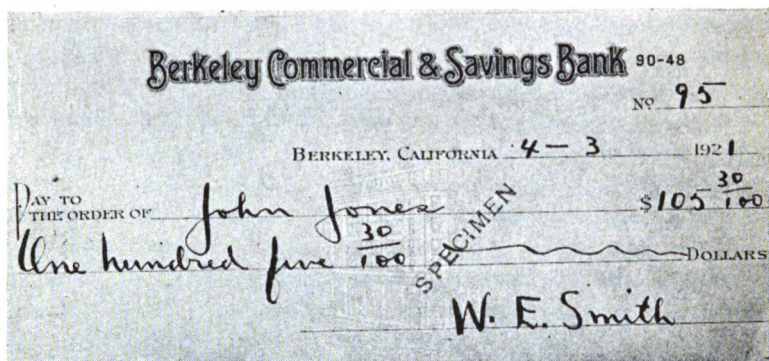 Berkeley Commercial & Savings Bank 90-48
No 95
BERKELEY, CALIFORNIA 4-3 1921
PAY TO
THE ORDER OF John Jones $105 30/100
One hundred five 30/100 DOLLARS
SPECIMEN
W. E. Smith